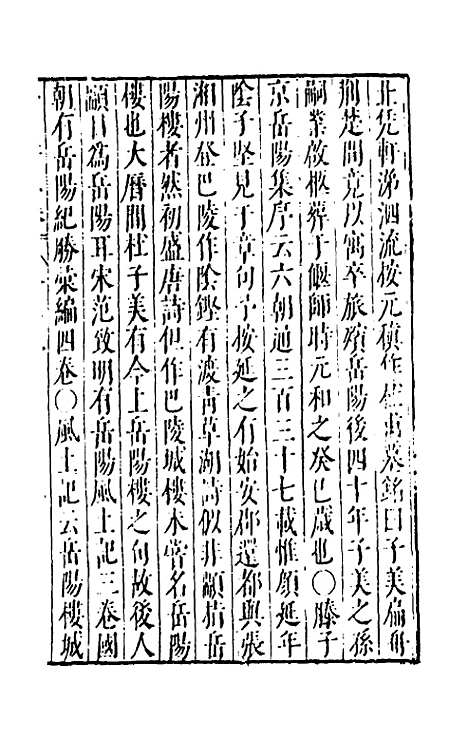 北凭軒涕泗流按元稹作工部墓銘曰子美扁舟
荆楚間竟以寓卒旅殯岳陽後四十年子美之孫
嗣業啟柩葬于偃師時元和之癸巳歲也〇滕子
京岳陽集序云六朝通三百三十七載惟顔延年
陰子堅見于章句予按延之有始安郡還都與張
湘州登巴陵作陰鏗有渡青草湖詩似非顓指岳
陽樓者然初盛唐詩但作巴陵城樓未嘗名岳陽
樓也大曆間杜子美有今上岳陽樓之句故後人
顓目為岳陽耳宋范致明有岳陽風土記三卷國
朝有岳陽紀勝彙編四卷〇風土記云岳陽樓城